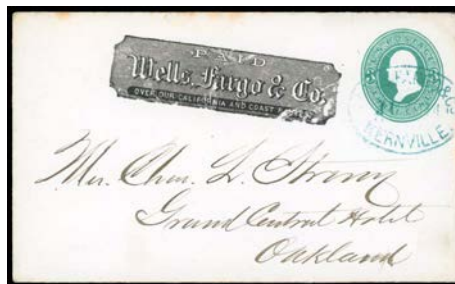 PAID
Wells, Fargo & Co.
OVER OUR CALIFORNIA AND COAST ROUTES
KERNVILLE
Mr. Chas. L. Strong
Grand Central Hotel
Oakland